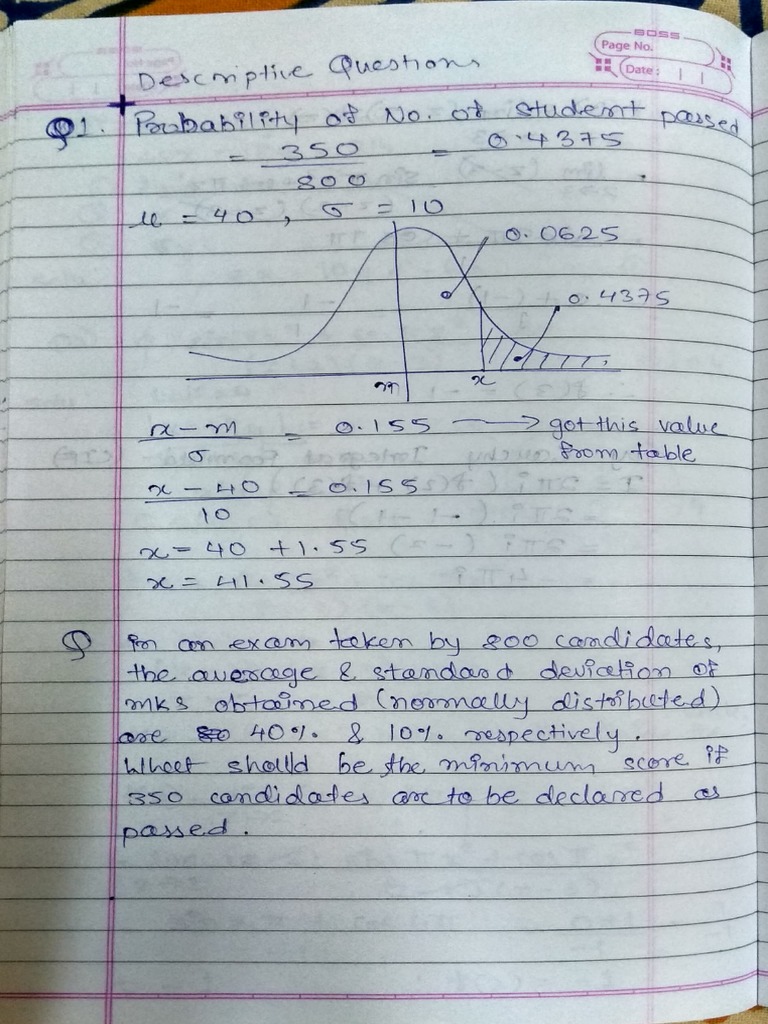 BOSS
Page No.
Date: | |
Descriptive Questions
Q1. Probability of No. of student passed
= 350/800 = 0.4375
μ = 40, σ = 10
0.0625
0.4375
m x
x - m/σ = 0.155 → got this value
from table
x - 40/10 = 0.155
x = 40 + 1.55
x = 41.55
Q In an exam taken by 800 candidates,
the average & standard deviation of
mks obtained (normally distributed)
are 40% & 10% respectively.
What should be the minimum score if
350 candidates are to be declared as
passed.